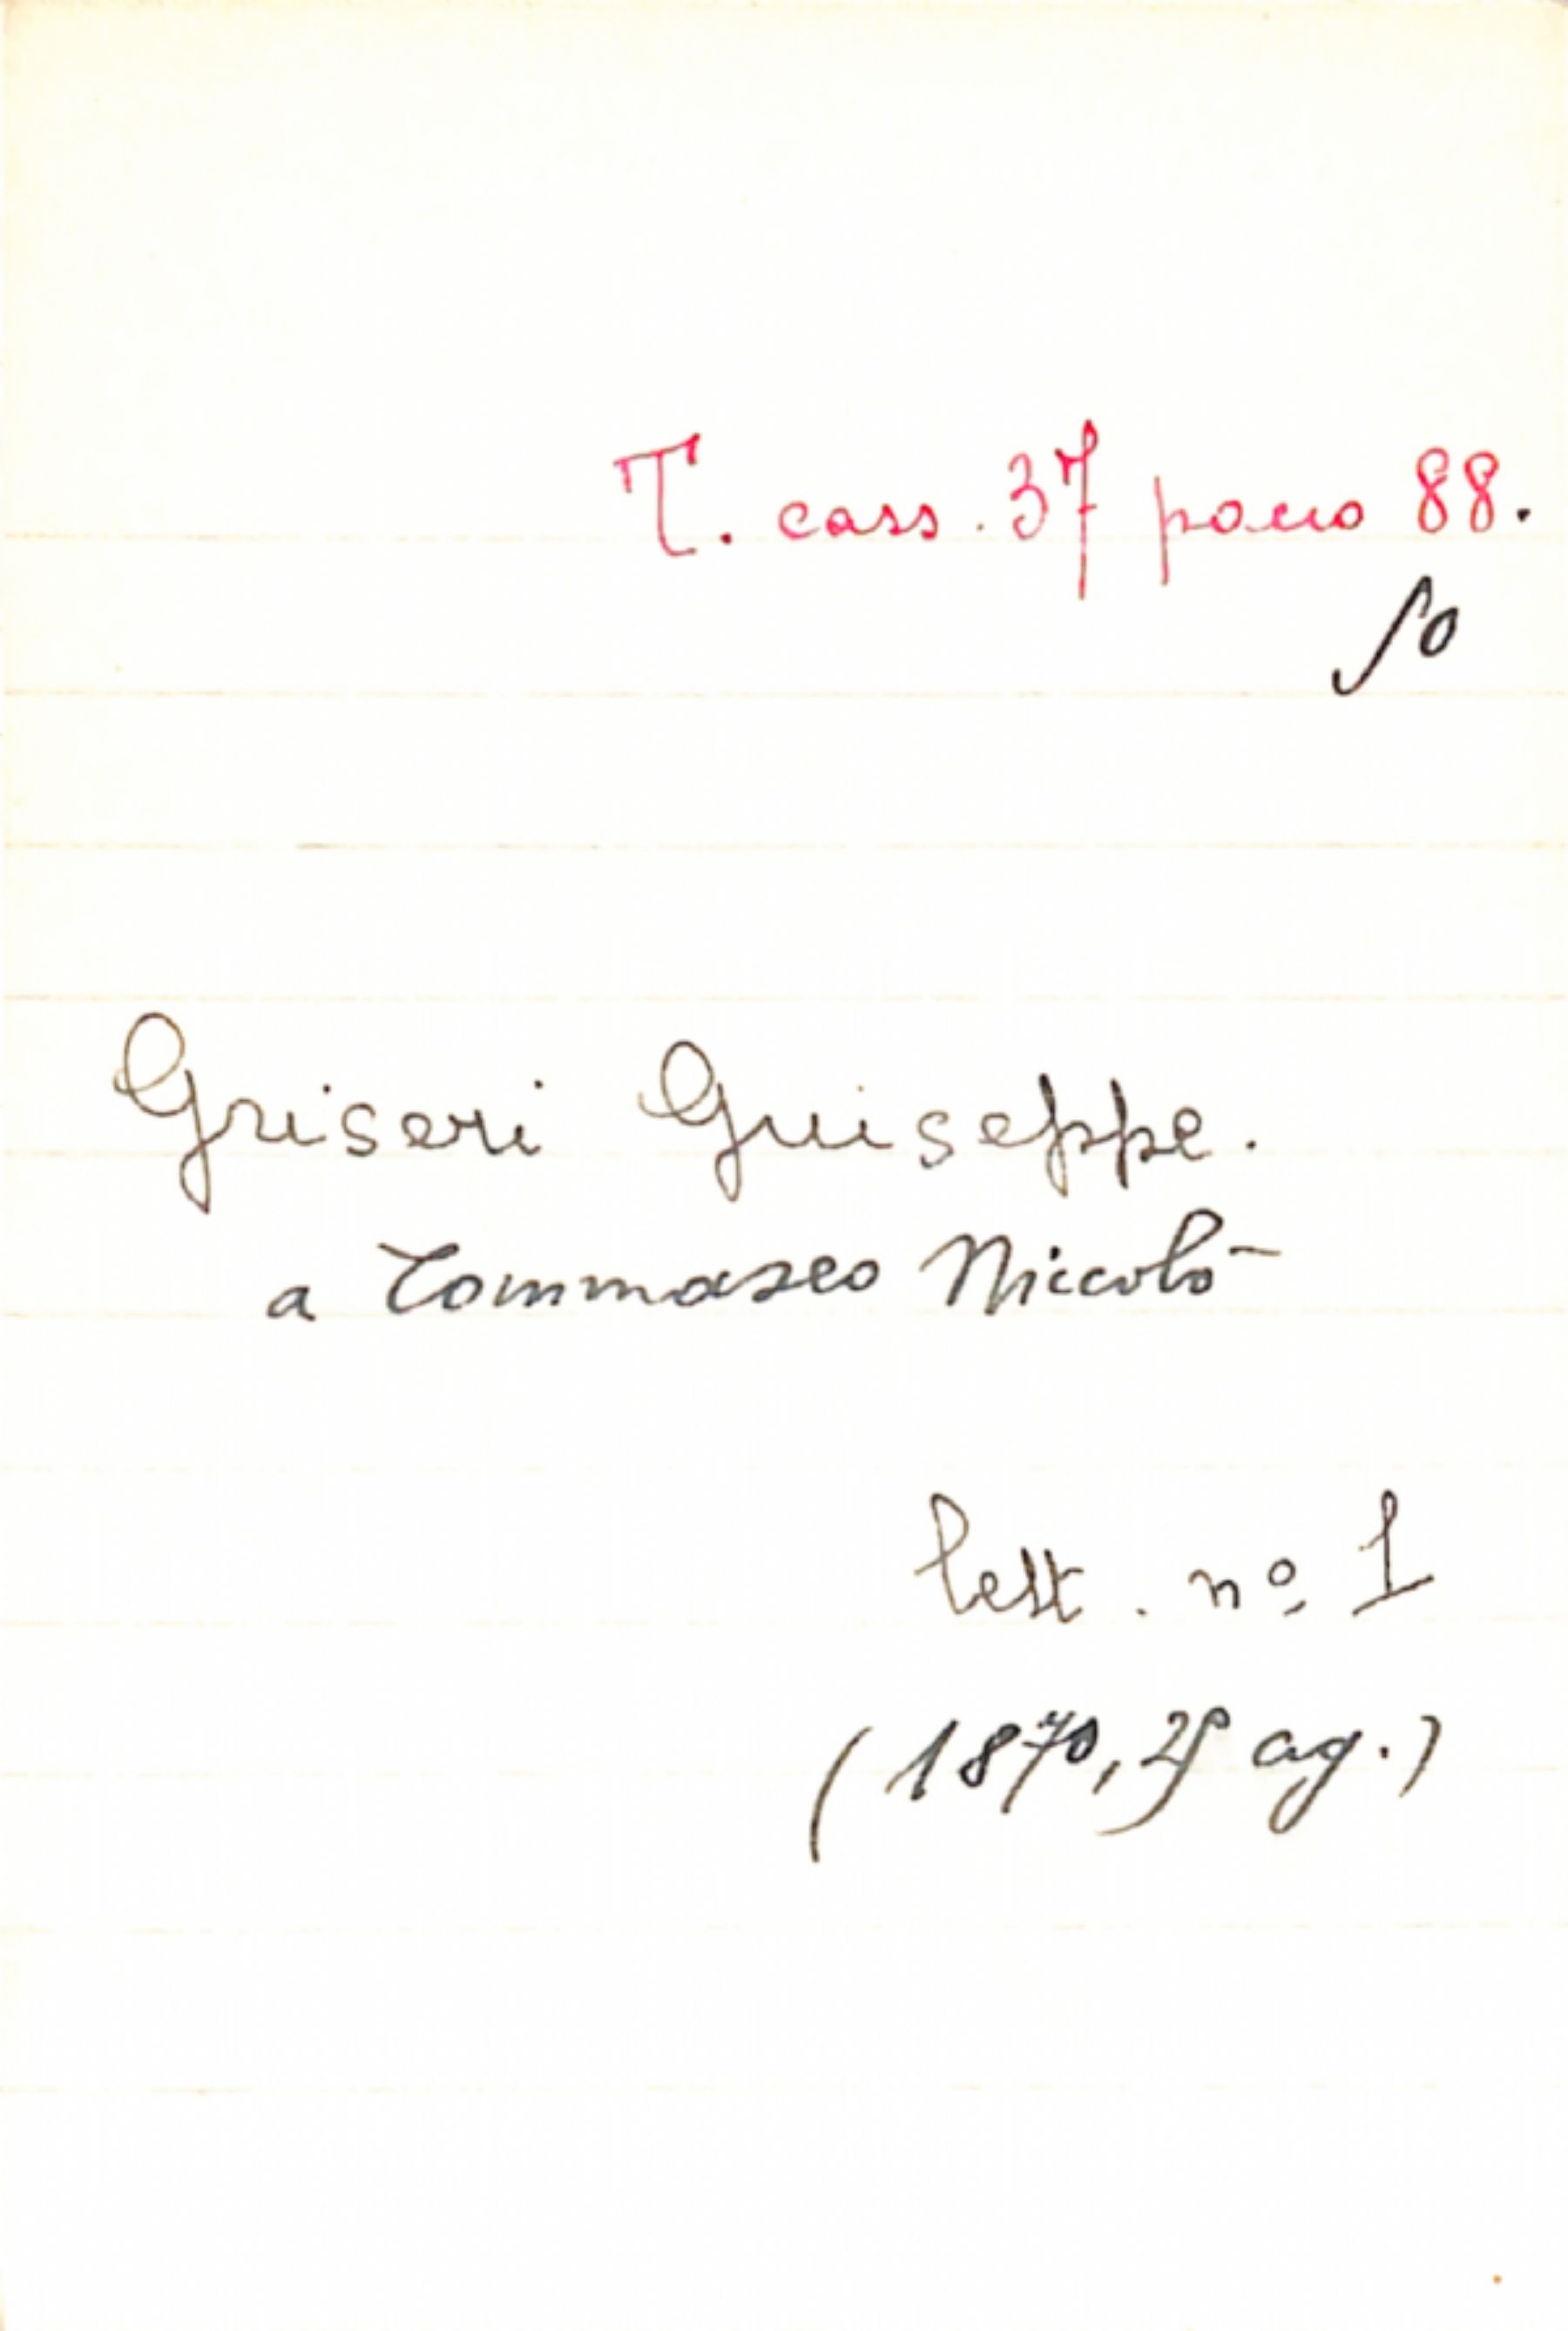 T. cass. 37 pacco 88.
10
Griseri Giuseppe.
a Tommaseo Niccolò
lett. nº 1
(1870, ag.)